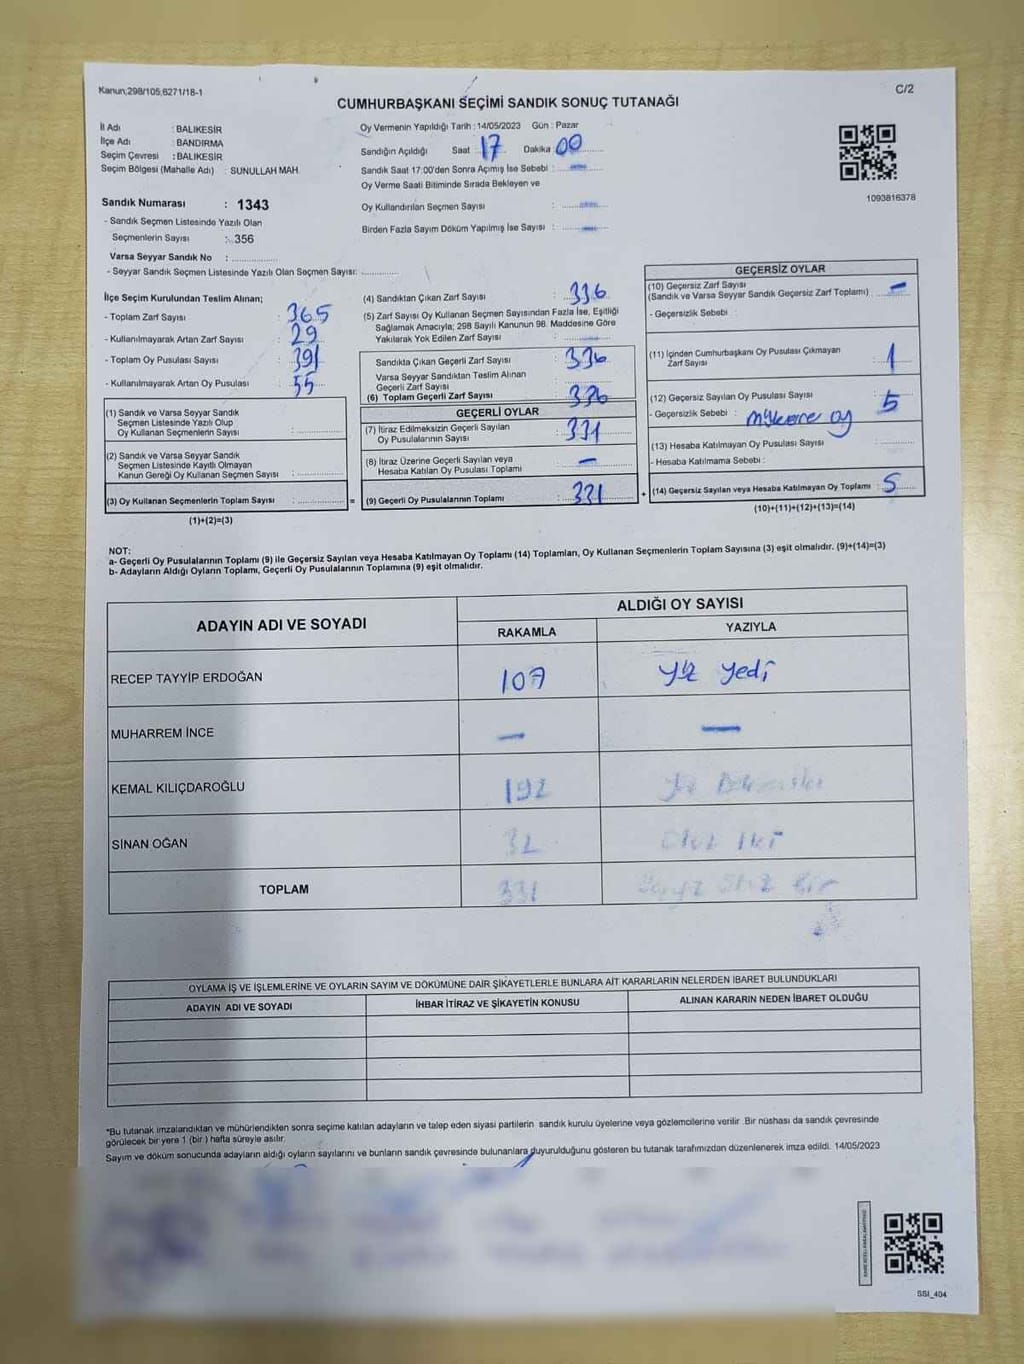 Kanun;298/105,6271/18-1
C/2
CUMHURBAŞKANI SEÇİMİ SANDIK SONUÇ TUTANAĞI
İl Adı : BALIKESİR
İlçe Adı : BANDIRMA
Seçim Çevresi : BALIKESİR
Seçim Bölgesi (Mahalle Adı) : SUNULLAH MAH.
Sandık Numarası : 1343
- Sandık Seçmen Listesinde Yazılı Olan
Seçmenlerin Sayısı : 356
Varsa Seyyar Sandık No :
- Seyyar Sandık Seçmen Listesinde Yazılı Olan Seçmen Sayısı:
Oy Vermenin Yapıldığı Tarih : 14/05/2023 Gün : Pazar
Sandığın Açıldığı Saat 17 Dakika 00
Sandık Saat 17:00'den Sonra Açımış İse Sebebi : -
Oy Verme Saati Bitiminde Sırada Bekleyen ve
Oy Kullandırılan Seçmen Sayısı :
Birden Fazla Sayım Döküm Yapılmış İse Sayısı : -
1093816378
İlçe Seçim Kurulundan Teslim Alınan;
- Toplam Zarf Sayısı : 365
- Kullanılmayarak Artan Zarf Sayısı : 29
- Toplam Oy Pusulası Sayısı : 391
- Kullanılmayarak Artan Oy Pusulası : 55
(1) Sandık ve Varsa Seyyar Sandık
Seçmen Listesinde Yazılı Olup
Oy Kullanan Seçmenlerin Sayısı :
(2) Sandık ve Varsa Seyyar Sandık
Seçmen Listesinde Kayıtlı Olmayan
Kanun Gereği Oy Kullanan Seçmen Sayısı :
(3) Oy Kullanan Seçmenlerin Toplam Sayısı : =
(1)+(2)=(3)
(4) Sandıktan Çıkan Zarf Sayısı : 336
(5) Zarf Sayısı Oy Kullanan Seçmen Sayısından Fazla İse, Eşitliği
Sağlamak Amacıyla; 298 Sayılı Kanunun 98. Maddesine Göre
Yakılarak Yok Edilen Zarf Sayısı :
Sandıkta Çıkan Geçerli Zarf Sayısı : 336
Varsa Seyyar Sandıktan Teslim Alınan
Geçerli Zarf Sayısı :
(6) Toplam Geçerli Zarf Sayısı : 336
GEÇERLİ OYLAR
(7) İtiraz Edilmeksizin Geçerli Sayılan
Oy Pusulalarının Sayısı : 331
(8) İtiraz Üzerine Geçerli Sayılan veya
Hesaba Katılan Oy Pusulası Toplamı : -
(9) Geçerli Oy Pusulalarının Toplamı : 331 +
GEÇERSİZ OYLAR
(10) Geçersiz Zarf Sayısı
(Sandık ve Varsa Seyyar Sandık Geçersiz Zarf Toplamı) : -
- Geçersizlik Sebebi :
(11) İçinden Cumhurbaşkanı Oy Pusulası Çıkmayan
Zarf Sayısı : 1
(12) Geçersiz Sayılan Oy Pusulası Sayısı : 5
- Geçersizlik Sebebi : oy
(13) Hesaba Katılmayan Oy Pusulası Sayısı :
- Hesaba Katılmama Sebebi :
(14) Geçersiz Sayılan veya Hesaba Katılmayan Oy Toplamı : 5
(10)+(11)+(12)+(13)=(14)
NOT:
a- Geçerli Oy Pusulalarının Toplamı (9) ile Geçersiz Sayılan veya Hesaba Katılmayan Oy Toplamı (14) Toplamları, Oy Kullanan Seçmenlerin Toplam Sayısına (3) eşit olmalıdır. (9)+(14)=(3)
b- Adayların Aldığı Oyların Toplamı, Geçerli Oy Pusulalarının Toplamına (9) eşit olmalıdır.
ADAYIN ADI VE SOYADI ALDIĞI OY SAYISI
RAKAMLA YAZIYLA
RECEP TAYYİP ERDOĞAN 107 Yüz yedi
MUHARREM İNCE - -
KEMAL KILIÇDAROĞLU 192
SİNAN OĞAN 32 Otuz iki
TOPLAM 331 bir
OYLAMA İŞ VE İŞLEMLERİNE VE OYLARIN SAYIM VE DÖKÜMÜNE DAİR ŞİKAYETLERLE BUNLARA AİT KARARLARIN NELERDEN İBARET BULUNDUKLARI
ADAYIN ADI VE SOYADI İHBAR İTİRAZ VE ŞİKAYETİN KONUSU ALINAN KARARIN NEDEN İBARET OLDUĞU
*Bu tutanak imzalandıktan ve mühürlendikten sonra seçime katılan adayların ve talep eden siyasi partilerin sandık kurulu üyelerine veya gözlemcilerine verilir .Bir nüshası da sandık çevresinde
görülecek bir yere 1 (bir ) hafta süreyle asılır.
Sayım ve döküm sonucunda adayların aldığı oyların sayılarını ve bunların sandık çevresinde bulunanlara duyurulduğunu gösteren bu tutanak tarafımızdan düzenlenerek imza edildi. 14/05/2023
SSI_404